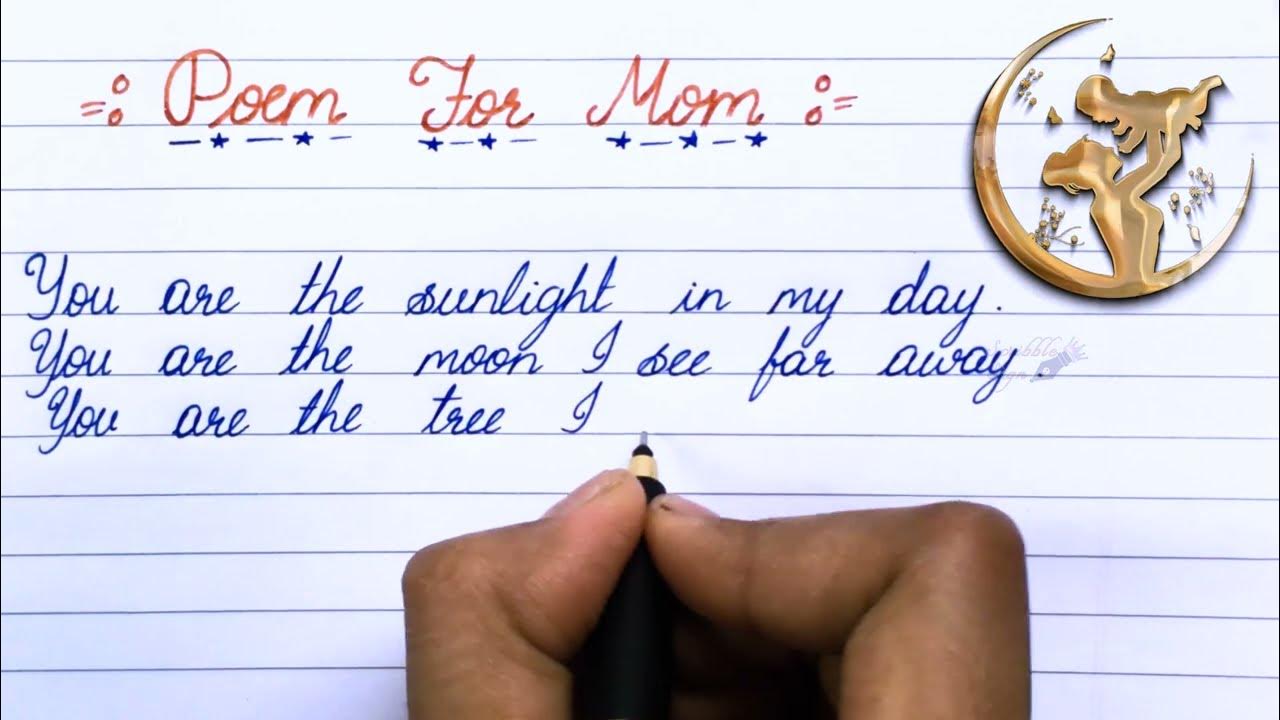 =: Poem For Mom :=
You are the sunlight in my day.
You are the moon I see far away.
You are the tree I